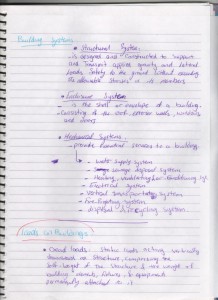 Building Systems
• Structural System
- is designed and constructed to support
and transport applied gravity and lateral
loads safely to the ground without exceeding
the allowable stresses in its members
• Enclosure System
- is the shell or envelope of a building.
- Consisting of the roof, exterior walls, windows
and doors
• Mechanical Systems
- provide essential services to a building.
- Water supply system
- Sewage disposal system
- Heating, Ventilating & Air-Conditioning
- Electrical system
- Vertical transportation system
- Fire fighting system
- disposal & recycling system
Loads on Buildings
• Dead loads - Static loads acting vertically
downward on structure, comprising the
self-weight of the structure & the weight of
building elements, fixtures & equipment
permanently attached to it